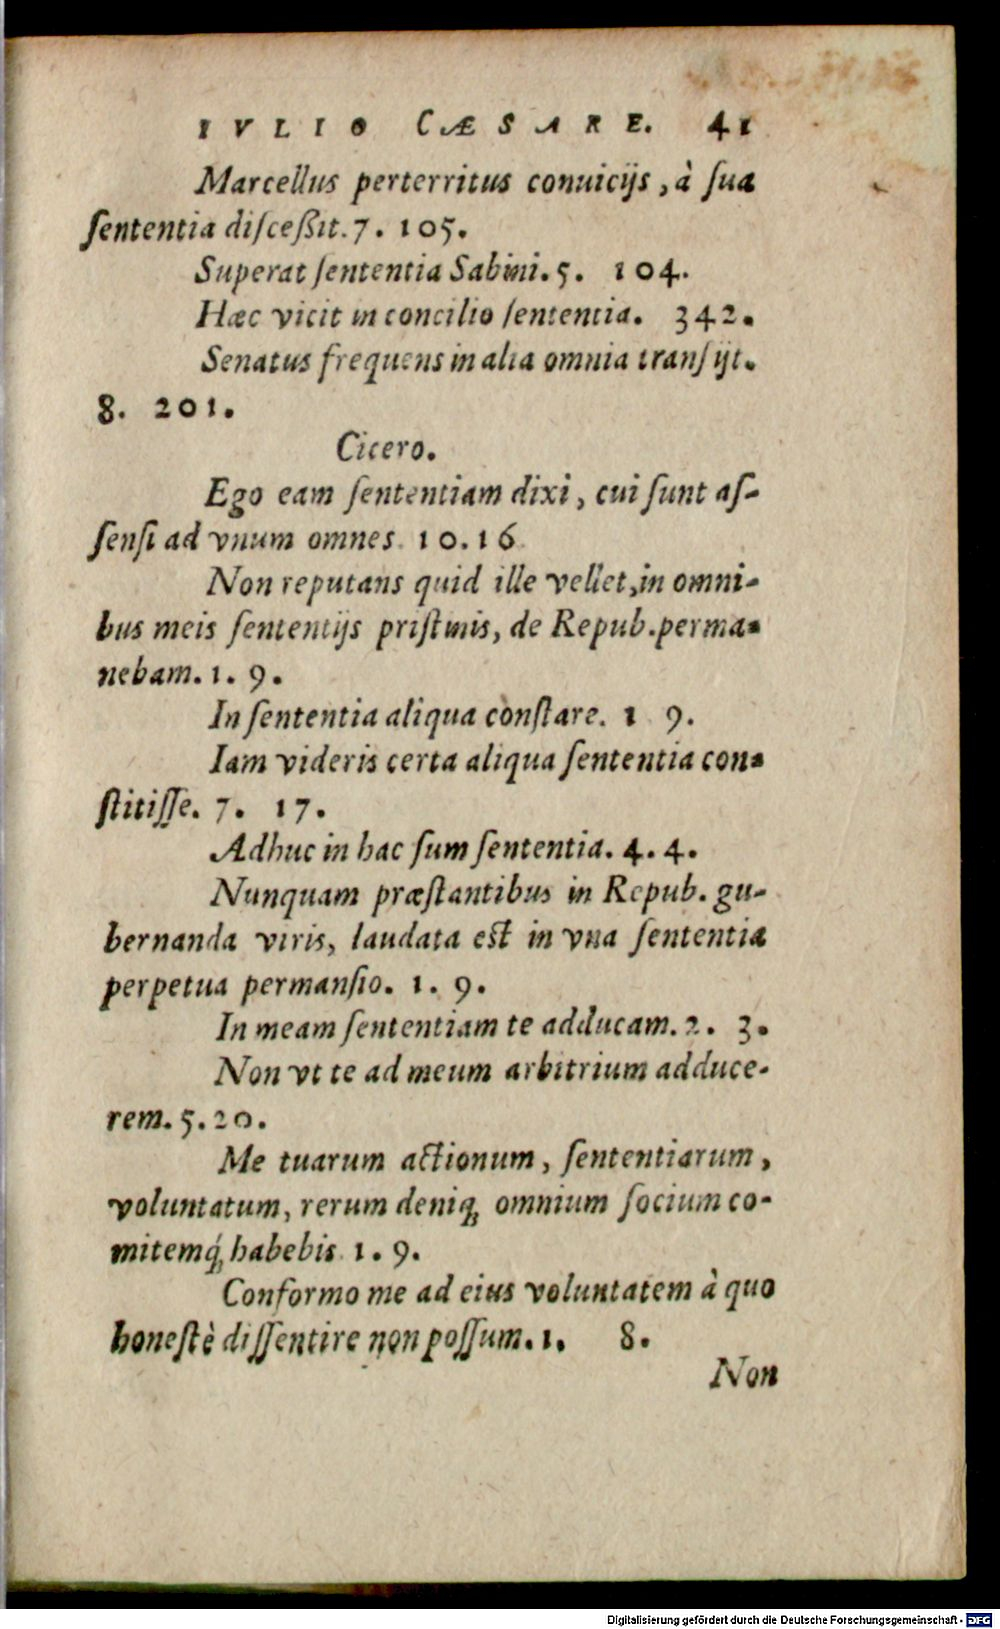 IVLIO CÆSARE. 41
Marcellus perterritus conuicijs, à ſua
ſententia diſceßit. 7. 105.
Superat ſententia Sabini. 5. 104.
Hæc vicit in concilio ſententia. 342.
Senatus frequens in alia omnia tranſijt.
8. 201.
Cicero.
Ego eam ſententiam dixi, cui ſunt aſ-
ſenſi ad vnum omnes. 10. 16
Non reputans quid ille vellet, in omni-
bus meis ſententijs priſtinis, de Repub. perma-
nebam. 1. 9.
In ſententia aliqua conſtare. 1 9.
Iam videris certa aliqua ſententia con-
ſtitiſſe. 7. 17.
Adhuc in hac ſum ſententia. 4. 4.
Nunquam præſtantibus in Repub. gu-
bernanda viris, laudata est in vna ſententia
perpetua permanſio. 1. 9.
In meam ſententiam te adducam. 2. 3.
Non vt te ad meum arbitrium adduce-
rem. 5. 20.
Me tuarum actionum, ſententiarum,
voluntatum, rerum deniq; omnium ſocium co-
mitemq́; habebis. 1. 9.
Conformo me ad eius voluntatem à quo
honeſtè diſſentire non poſſum. 1. 8.
Non
Digitalisierung gefördert durch die Deutsche Forschungsgemeinschaft - DFG